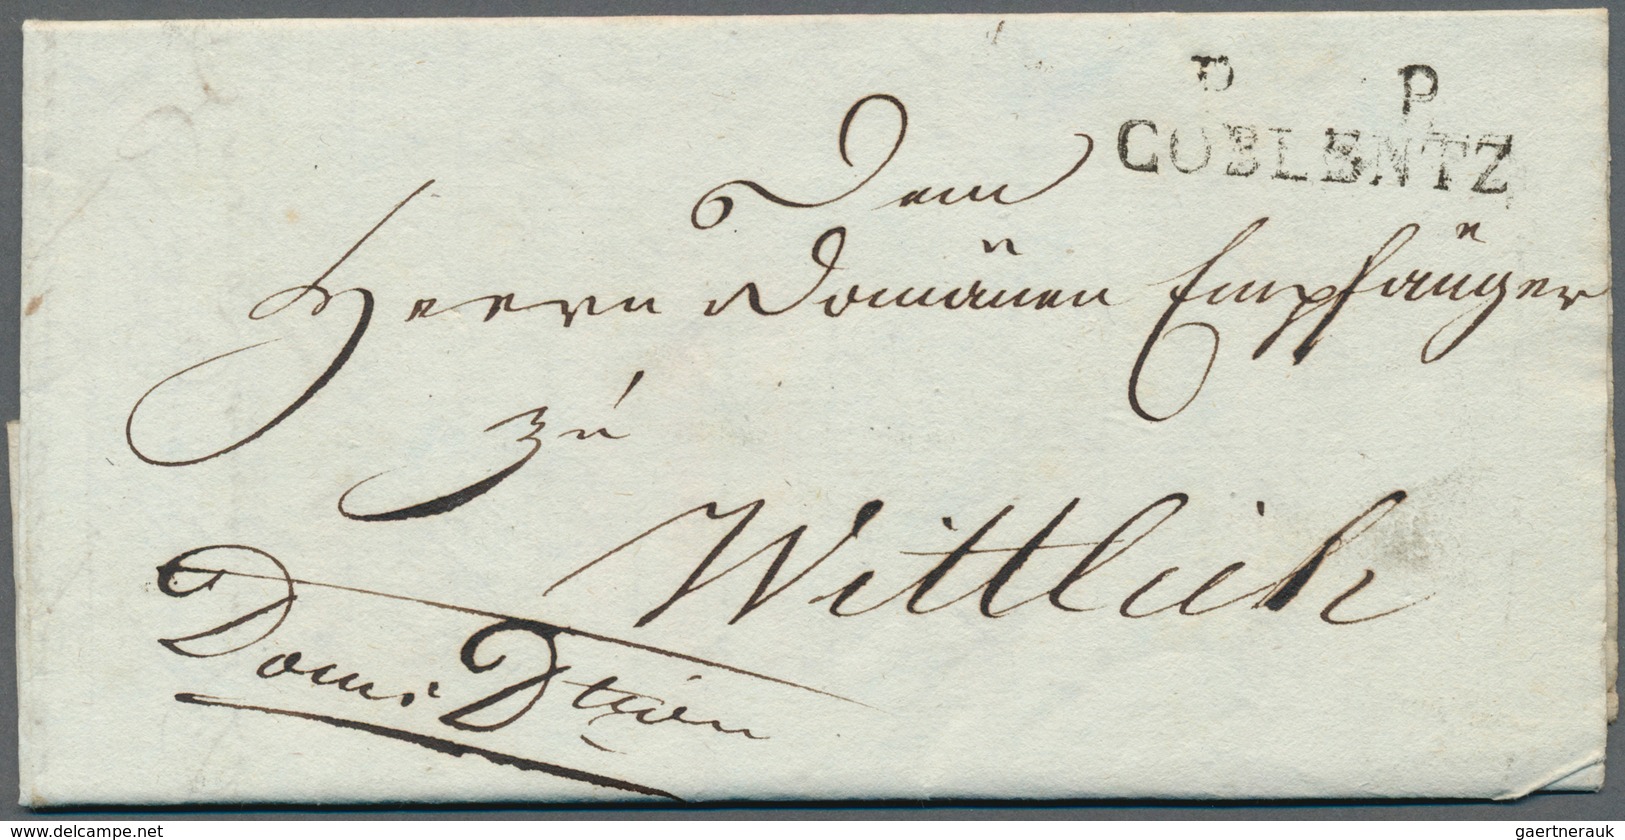 P P
COBLENTZ
Dem
Herrn Domänen Empfänger
zu
Wittlich
Dom: Dtion
www.delcampe.net
gaertnerauk